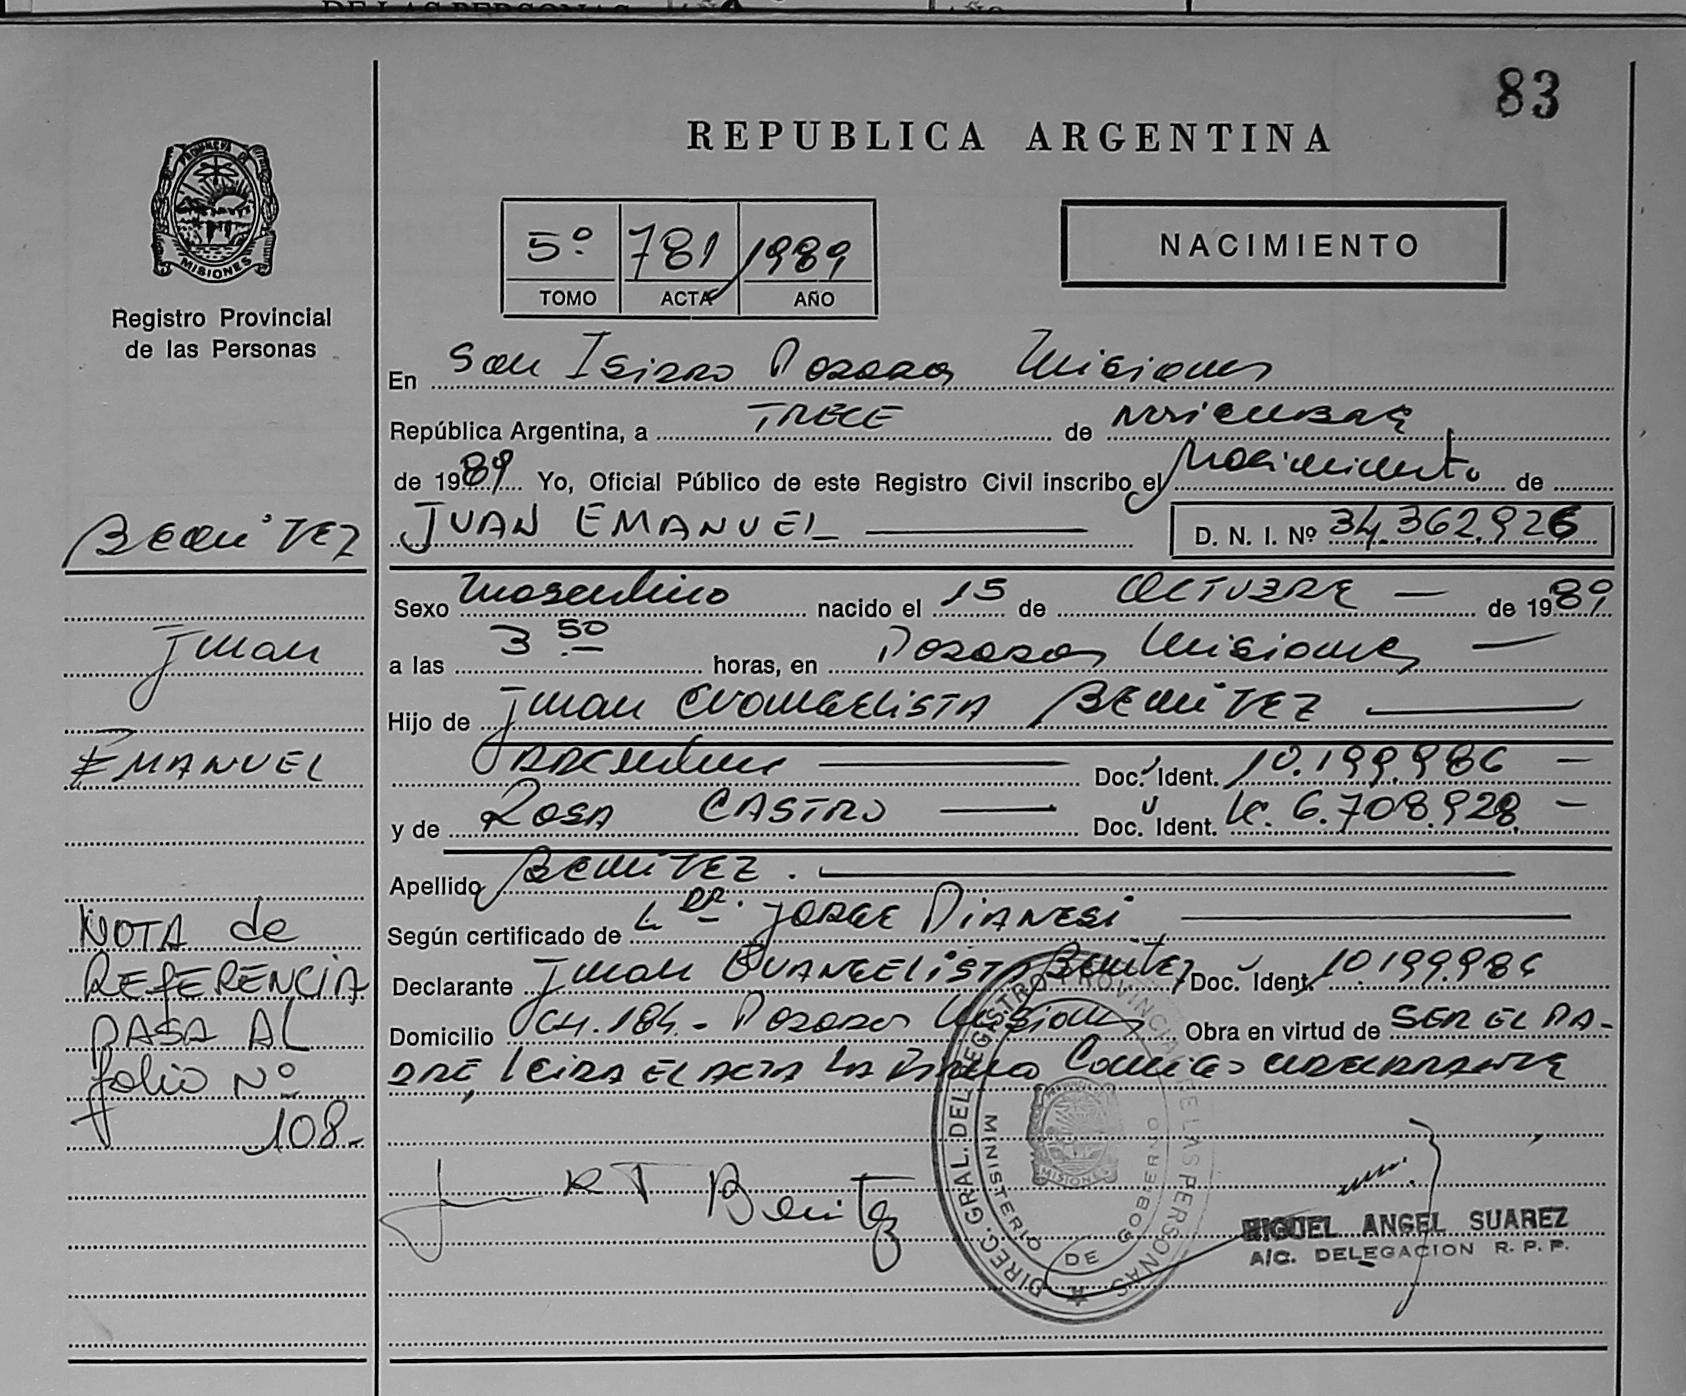 83
REPUBLICA ARGENTINA
PROVINCIA DE
MISIONES
Registro Provincial
de las Personas
5º 781 1989
TOMO ACTA AÑO
NACIMIENTO
En San Isidro Posadas Misiones
República Argentina, a TRECE de NoviembRe
de 1989 Yo, Oficial Público de este Registro Civil inscribo el Nacimiento de
JUAN EMANUEL
D. N. I. Nº 34.362.926
Sexo Masculino nacido el 15 de OCTUBRE de 1989
a las 3 50 horas, en Posadas Misiones
Hijo de Juan Evangelista Benitez
Argentino Doc. Ident. 10.199.986
y de Rosa CASTRO Doc. Ident. LC. 6.708.928
Apellido Benitez.
Según certificado de Dr. Jorge Dianesi
Declarante Juan Evangelista Benitez Doc. Ident. 10.199.986
Domicilio CH.184.- Posadas Misiones Obra en virtud de SER EL PA-
DRE, leida EL ACTA LA firma
BENITEZ
Juan
EMANUEL
NOTA de
REFERENCIA
PASA AL
folio Nº
108.-
Benitez
DIREC. GRAL. DEL REGISTRO PROVINCIAL DE LAS PERSONAS
MINISTERIO DE GOBIERNO
MISIONES
MIGUEL ANGEL SUAREZ
A/C. DELEGACION R. P. P.